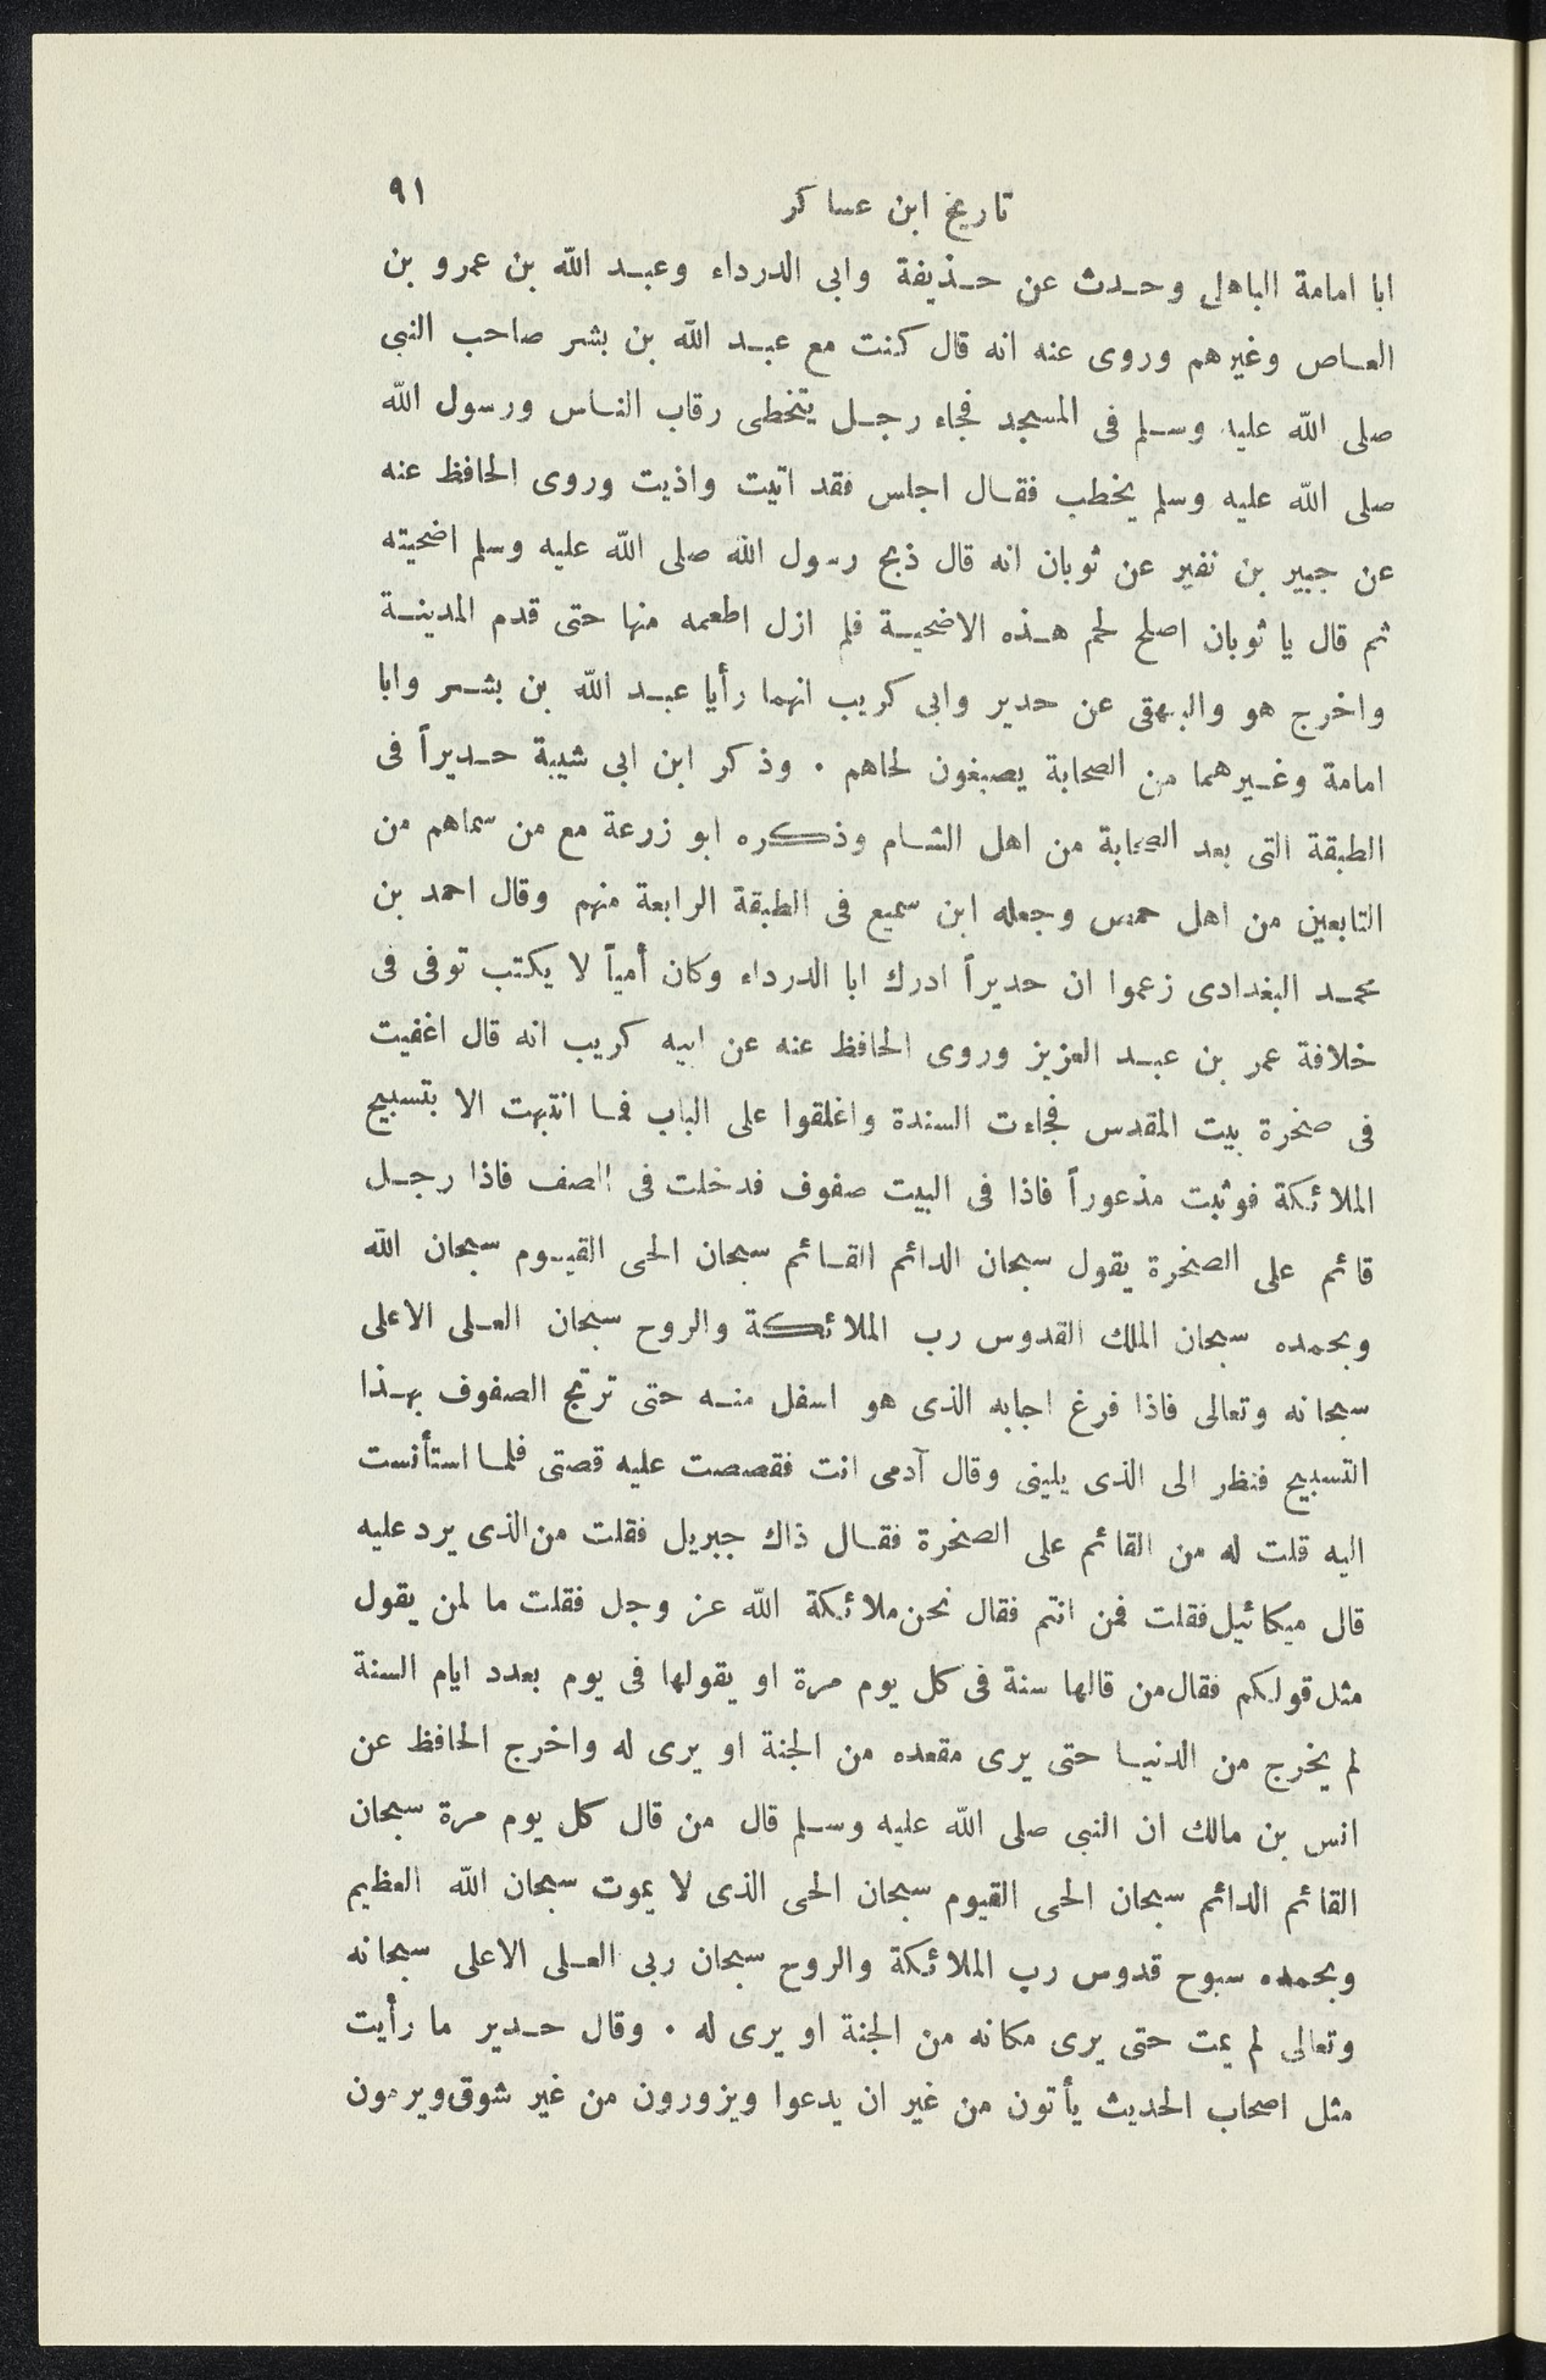 تاريخ ابن عساكر ٩١
ابا امامة الباهلى وحدث عن حذيفة وابى الدرداء وعبد الله بن عمرو بن
العاص وغيرهم وروى عنه انه قال كنت مع عبد الله بن بشر صاحب النبى
صلى الله عليه وسلم فى المسجد فجاء رجل يتخطى رقاب الناس ورسول الله
صلى الله عليه وسلم يخطب فقال اجلس فقد اتيت واذيت وروى الحافظ عنه
عن جبير بن نفير عن ثوبان انه قال ذبح رسول الله صلى الله عليه وسلم اضحيته
ثم قال يا ثوبان اصلح لحم هذه الاضحية فلم ازل اطعمه منها حتى قدم المدينة
واخرج هو والبيهقى عن حدير وابى كريب انهما رأيا عبد الله بن بشر وابا
امامة وغيرهما من الصحابة يصبغون لحاهم . وذكر ابن ابى شيبة حديراً فى
الطبقة التى بعد الصحابة من اهل الشام وذكره ابو زرعة مع من سماهم من
التابعين من اهل حمص وجعله ابن سميع فى الطبقة الرابعة منهم وقال احمد بن
محمد البغدادى زعموا ان حديراً ادرك ابا الدرداء وكان أمياً لا يكتب توفى فى
خلافة عمر بن عبد العزيز وروى الحافظ عنه عن ابيه كريب انه قال اغفيت
فى صخرة بيت المقدس فجاءت السندة واغلقوا على الباب فما انتبهت الا بتسبيح
الملائكة فوثبت مذعوراً فاذا فى البيت صفوف فدخلت فى الصف فاذا رجل
قائم على الصخرة يقول سبحان الدائم القائم سبحان الحى القيوم سبحان الله
وبحمده سبحان الملك القدوس رب الملائكة والروح سبحان العلى الاعلى
سبحانه وتعالى فاذا فرغ اجابه الذى هو اسفل منه حتى ترتج الصفوف بهذا
التسبيح فنظر الى الذى يلينى وقال آدمى انت فقصصت عليه قصتى فلما استأنست
اليه قلت له من القائم على الصخرة فقال ذاك جبريل فقلت من الذى يرد عليه
قال ميكائيل فقلت فمن انتم فقال نحن ملائكة الله عز وجل فقلت ما لمن يقول
مثل قولكم فقال من قالها سنة فى كل يوم مرة او يقولها فى يوم بعدد ايام السنة
لم يخرج من الدنيا حتى يرى مقعده من الجنة او يرى له واخرج الحافظ عن
انس بن مالك ان النبى صلى الله عليه وسلم قال من قال كل يوم مرة سبحان
القائم الدائم سبحان الحى القيوم سبحان الحى الذى لا يموت سبحان الله العظيم
وبحمده سبوح قدوس رب الملائكة والروح سبحان ربى العلى الاعلى سبحانه
وتعالى لم يمت حتى يرى مكانه من الجنة او يرى له . وقال حدير ما رأيت
مثل اصحاب الحديث يأتون من غير ان يدعوا ويزورون من غير شوق ويرمون